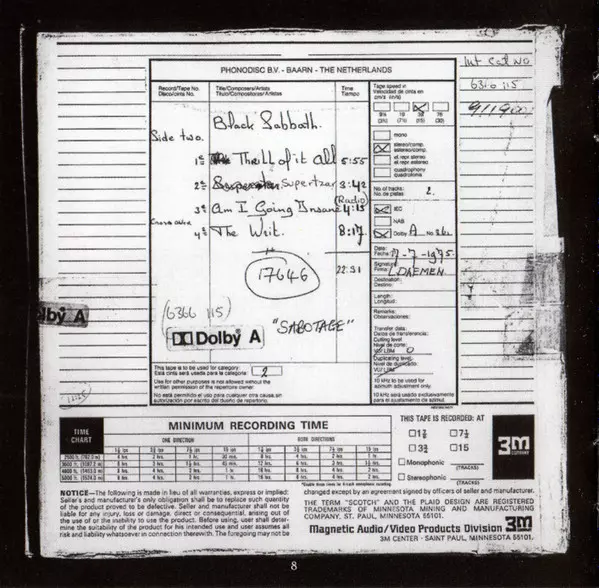 Int Cat No
6366 115
9119001
PHONODISC B.V. - BAARN - THE NETHERLANDS
Record/Tape No. Title/Composers/Artists Time Tape speed in
Disco/cinta No. Titulo/Compositores/Artistas Tiempo Velocidad de cinta en
cm/s (in/s)
9½ 19 38 76
(3¾) (7½) (15) (30)
Black Sabbath.
Side two.
1e Thrill of it all 5:55
2e Supertzar 3:42
(Radio)
3e Am I Going Insane 4:15
4e The Writ. 8:17
22:31
17646
(6366 115)
"SABOTAGE"
Dolby A
lby A
mono
stereo/comp.
estereo/comp.
st. repr. stereo
el repr. estereo
quadrophony
quadrofonia
No. of tracks: 2.
No. de pistas:
IEC
NAB
Dolby A No. 361
Date:
Fecha: 7-7-1975
Signature
Firma: L. DAEMEN
Destination:
Destino:
Length:
Longitud:
Remarks:
Observaciones:
Transfer data:
Datos de transferencia:
Cutting level
Nivel de corte:
VU/LBM 0
Duplicating level
Nivel de duplicado:
VU/LBM
10 kHz to be used for
azimuth adjustment only.
10 kHz será usado exclusivamente
para el ajustamiento de azimut.
This tape is to be used for category: 2
Esta cinta será usada para la categoria:
Use for other purposes is not allowed without the
written permission of the repertoire owner.
No está permitido el uso para cualquier otra causa sin
autorización por escrito del dueño de repertorio.
TIME
CHART
MINIMUM RECORDING TIME
ONE DIRECTION BOTH DIRECTIONS
THIS TAPE IS RECORDED: AT
1⅞ 7½
3¾ 15
Monophonic (TRACKS)
Stereophonic (TRACKS)
3M
COMPANY
NOTICE—The following is made in lieu of all warranties, express or implied:
Seller's and manufacturer's only obligation shall be to replace such quantity
of the product proved to be defective. Seller and manufacturer shall not be
liable for any injury, loss or damage, direct or consequential, arising out of
the use of or the inability to use the product. Before using, user shall deter-
mine the suitability of the product for his intended use and user assumes all
risk and liability whatsoever in connection therewith. The foregoing may not be
changed except by an agreement signed by officers of seller and manufacturer.
THE TERM "SCOTCH" AND THE PLAID DESIGN ARE REGISTERED
TRADEMARKS OF MINNESOTA MINING AND MANUFACTURING
COMPANY, ST. PAUL, MINNESOTA 55101.
Magnetic Audio/Video Products Division 3M
3M CENTER · SAINT PAUL, MINNESOTA 55101.
8